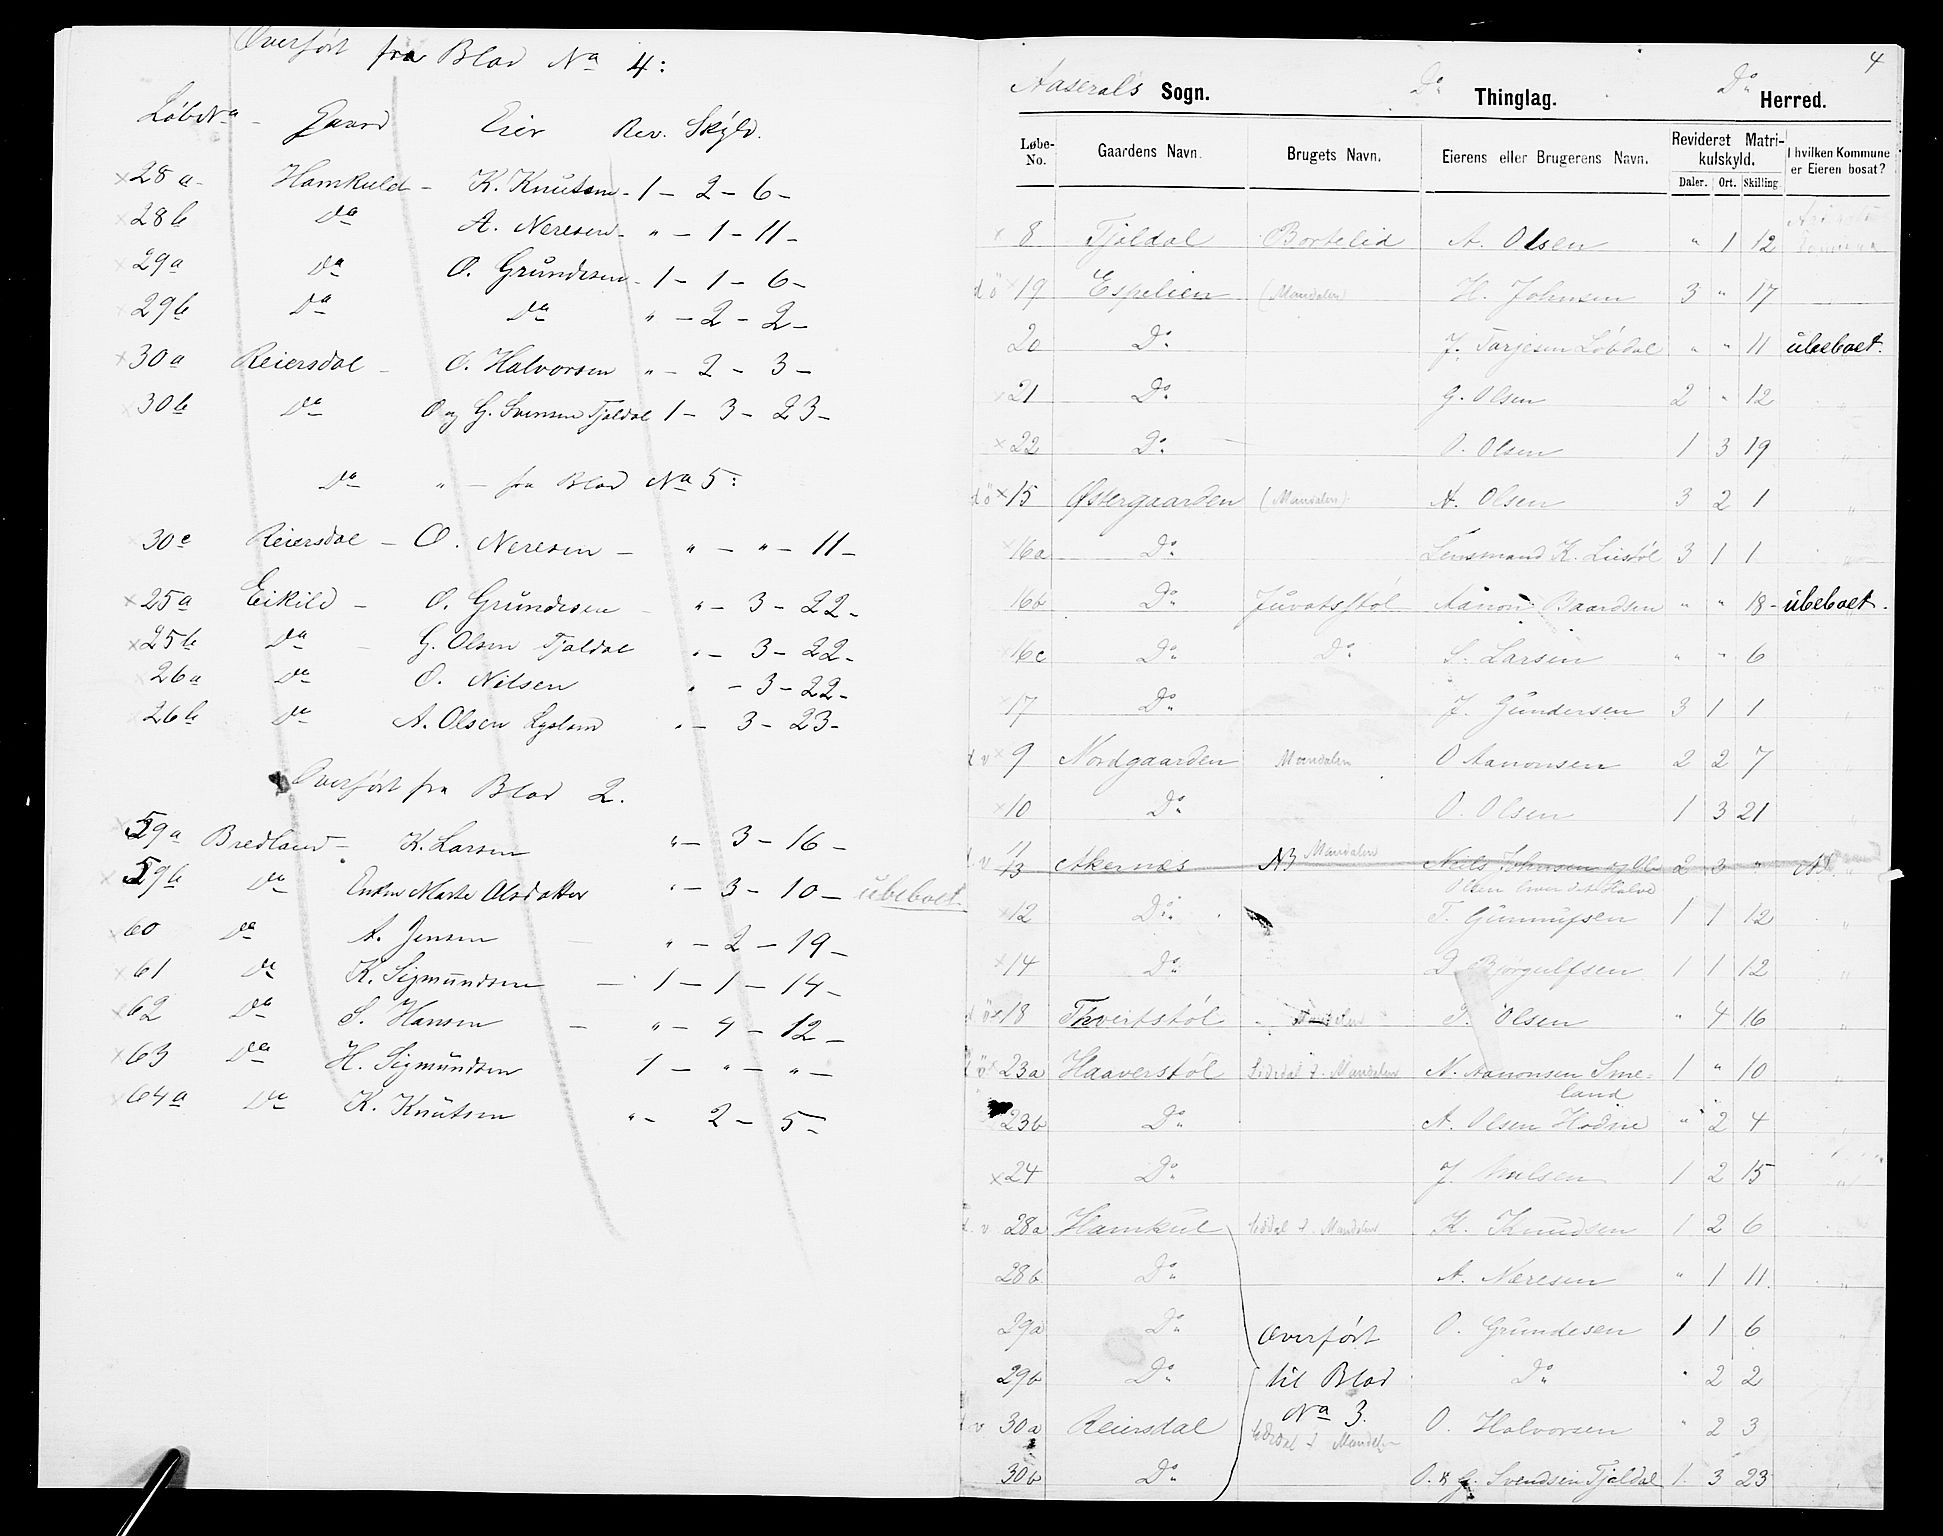 Overført fra Blad No 4:
LøbeNo - Gaard Eier Rev. Skyld.
x 28a - Homkuld - K. Knutsen - 1 - 2 - 6 -
x 28b Do A. Neresen - " - 1 - 11 -
x 29a Do O. Grundesen - 1 - 1 - 6 -
x 29b Do Do " - 2 - 2 -
x 30a Reiersdal - O. Halvorsen " - 2 - 3 -
30b Do O og G. Svensen Tjaldal 1 - 3 - 23 -
Do " - fra Blad No 5:
30c Reiersdal - O. Neresen - " - " - 11 -
x 25a Eikild - O. Grundesen - " - 3 - 22 -
x 25b Do - G. Olsen Tjaldal " - 3 - 22 -
26a Do O. Nilsen " - 3 - 22 -
26b Do A. Olsen " - 3 - 23 -
Overført fra Blad 2.
59a Bredland - K. Larsen " - 3 - 16 -
x 59b Do Enken Marte Olsdatter " - 3 - 10 - ubeboet.
60 Do A. Jensen - " - 2 - 19 -
x 61 Do K. Sigmundsen - 1 - 1 - 14 -
x 62 Do S. Hansen - " - 4 - 12 -
x 63 Do H. Sigmundsen 1 - " - " -
x 64a Do K. Knutsen " - 2 - 5 -
4
Aaserals Sogn. Do Thinglag. Do Herred.
Løbe-No. Gaardens Navn. Brugets Navn. Eierens eller Brugerens Navn. Revideret Matrikulskyld. I hvilken Kommune er Eieren bosat?
Daler. Ort. Skilling
x 8 Tjaldal Bortelid A. Olsen " 1 12
19 Espelien (Mandalen) H. Johnsen 3 " 17
20 Do J. Tarjesen Løbdal " " 11 ubeboet.
x 21 Do G. Olsen 2 " 12 "
x 22 Do O. Olsen 1 3 19 "
x 15 Østergaarden (Mandalen) A. Olsen 3 2 1 "
x 16a Do Lensmand K. Liestøl 3 1 1 "
16b Do Juvatsstøl Aanon Baardsen " " 18 - ubeboet.
x 16c Do Do S. Larsen " " 6 "
x 17 Do J. Gundersen 3 1 1 "
x 9 Nordgaarden Mandalen O Aanonsen 2 2 7 "
x 10 Do O. Olsen 1 3 21 "
11/13 Akernæs Mandalen Niels Johnsen og Ole 2 3 "
Olsen hver det Halve
x 12 Do T. Gunnufsen 1 1 12 "
x 14 Do D. Bjørgulfsen 1 1 12 "
x 18 Thveitstøl Mandalen J. Olsen " 4 16 "
x 23a Haaverstøl Mandalen N. Aanonsen Sme- 1 " 10 "
land
23b Do A. Olsen Hodne " 2 4
x 24 Do J. Nielsen 1 2 15 "
28a Hamkul Mandalen K. Knudsen 1 2 6 "
28b Do A. Næresen " 1 11 "
29a Do Overført O. Grundesen 1 1 6 "
29b Do til Blad Do " 2 2
No 3.
30a Reiersdal Mandalen O. Halvorsen " 2 3
30b Do O. & G. Svendsen Tjaldal 1 3 23